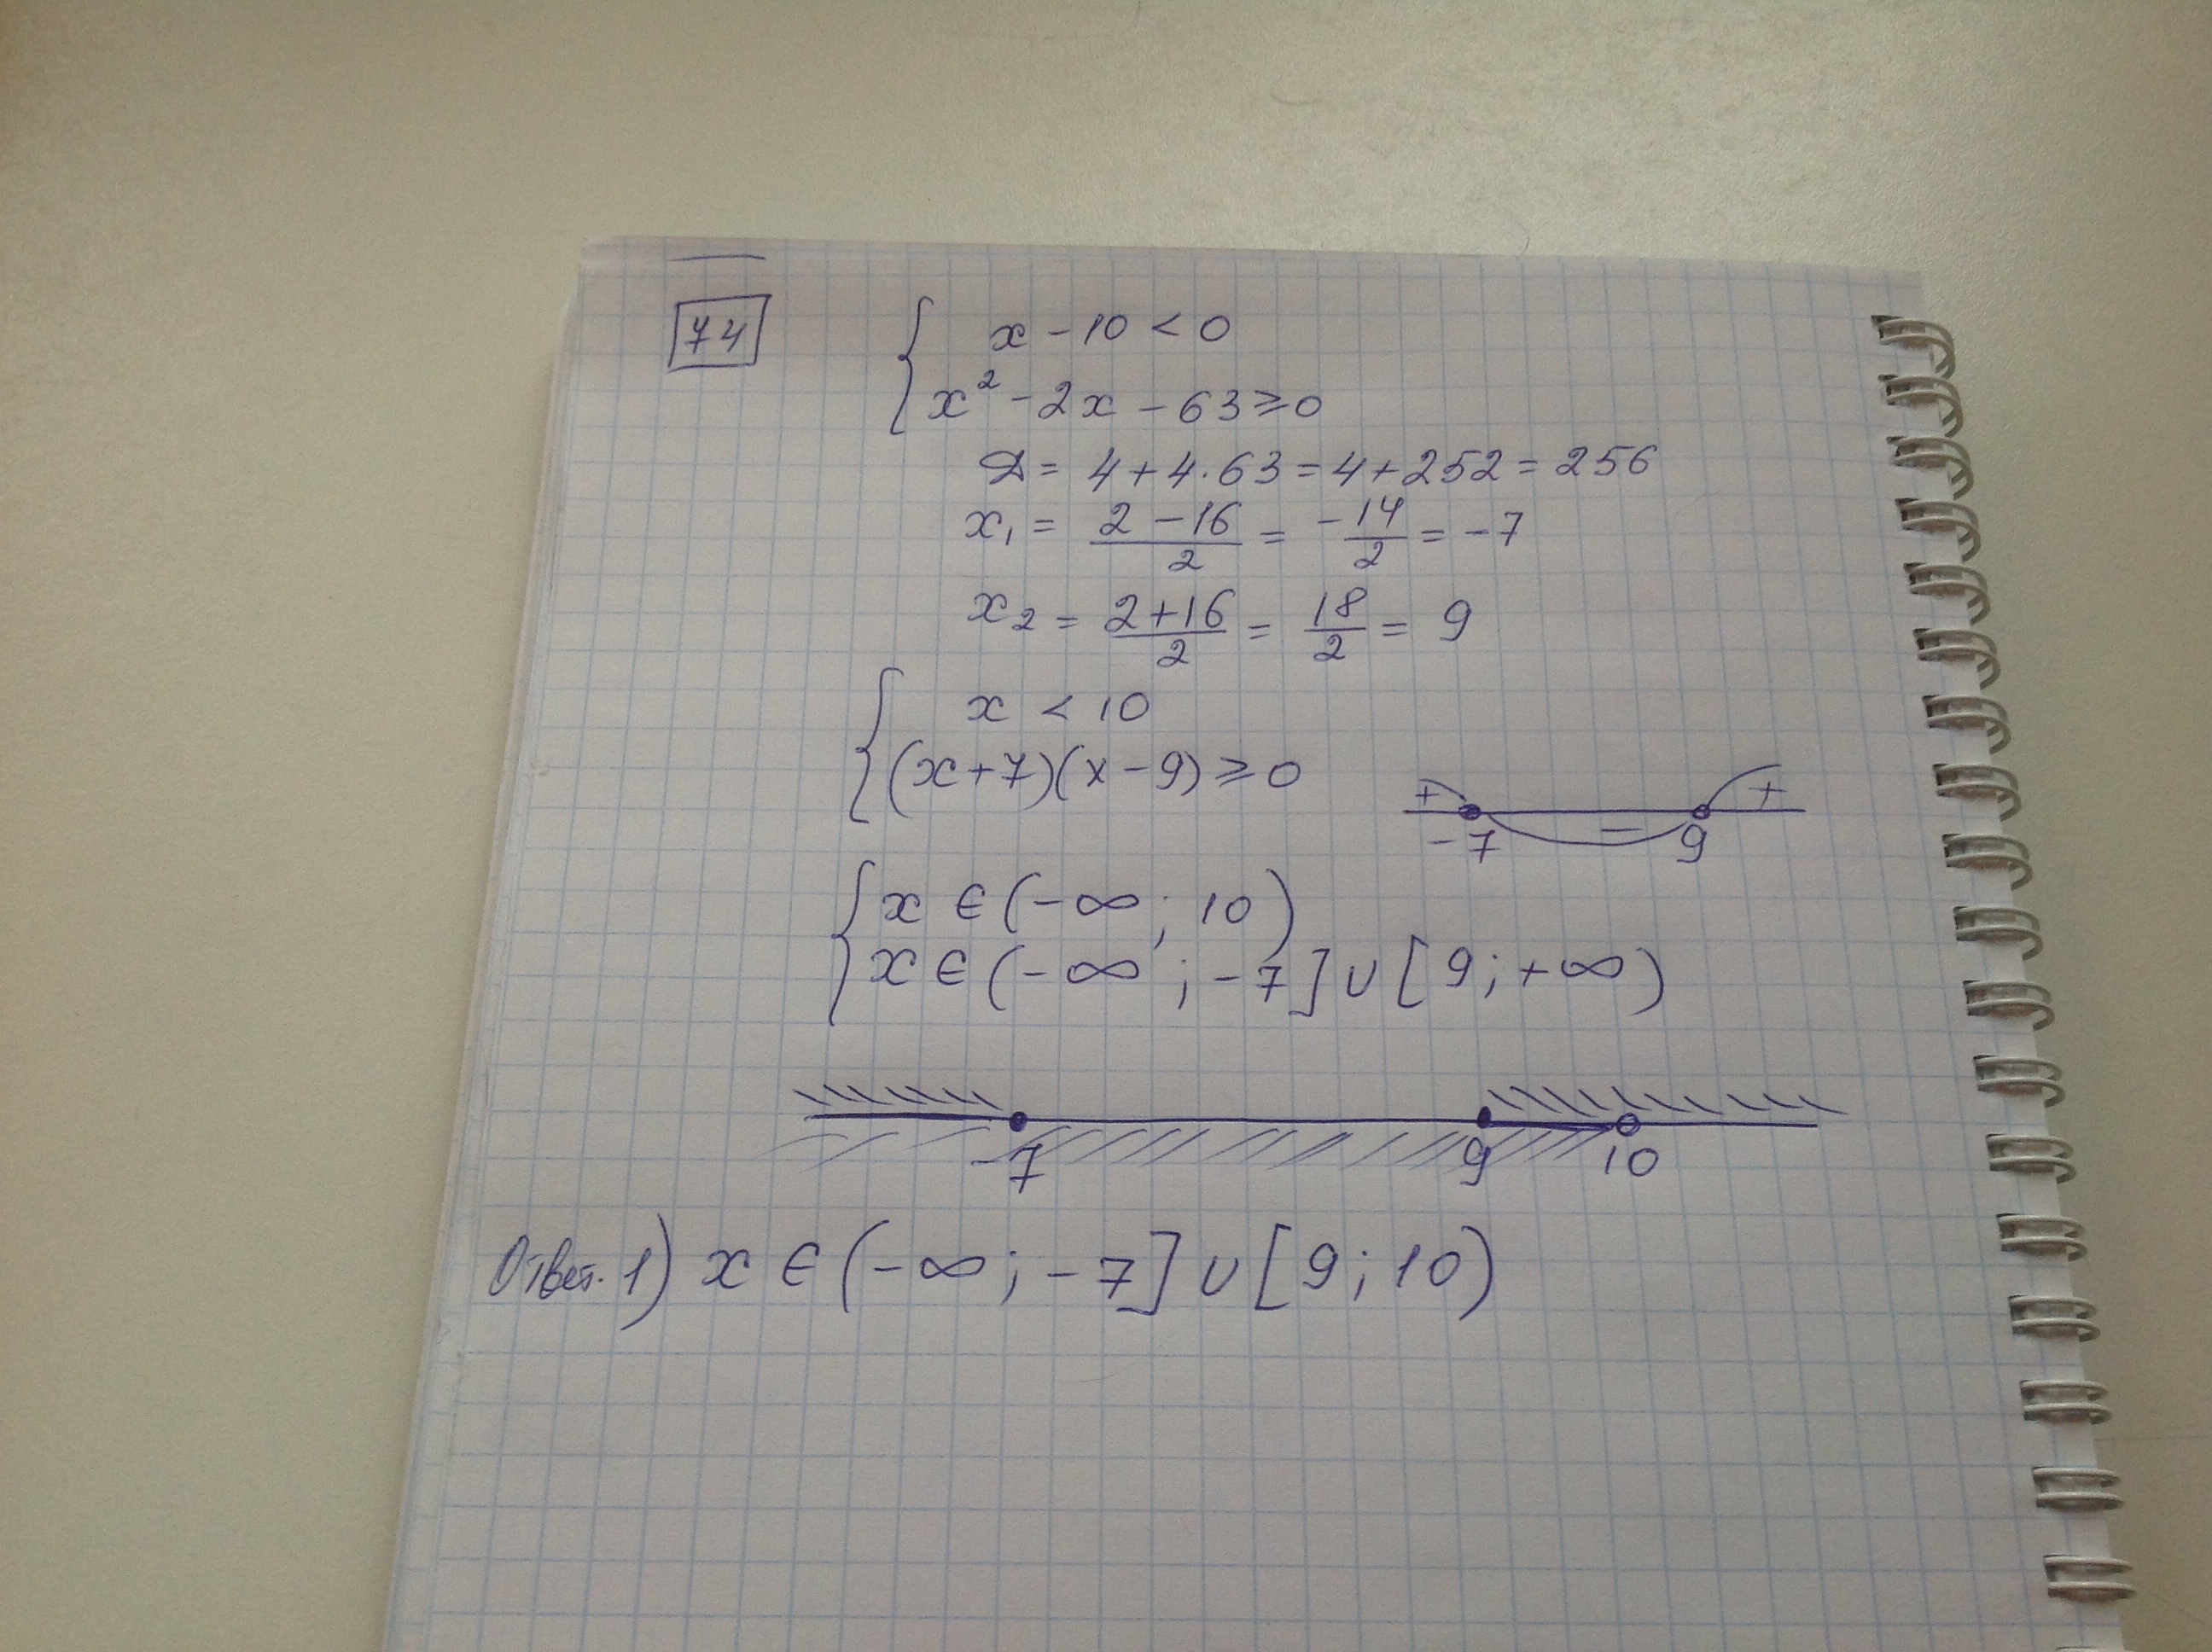 74
x - 10 < 0
x² - 2x - 63 ≥ 0
D = 4 + 4 · 63 = 4 + 252 = 256
x₁ = (2 - 16)/2 = -14/2 = -7
x₂ = (2 + 16)/2 = 18/2 = 9
x < 10
(x + 7)(x - 9) ≥ 0
+ - +
-7 9
x ∈ (-∞; 10)
x ∈ (-∞; -7] ∪ [9; +∞)
-7 9 10
Ответ. 1) x ∈ (-∞; -7] ∪ [9; 10)